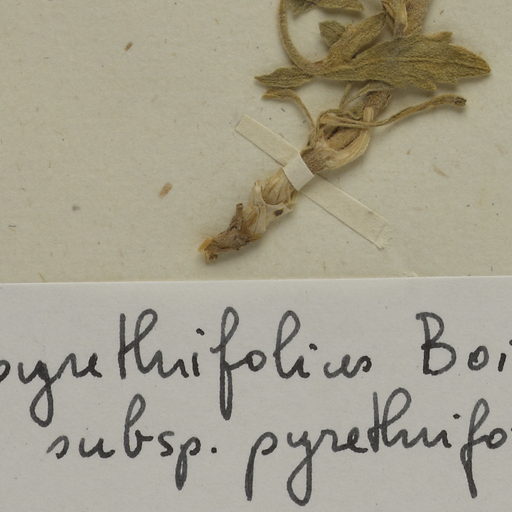 pyrethrifolius Boi
subsp. pyrethrifo